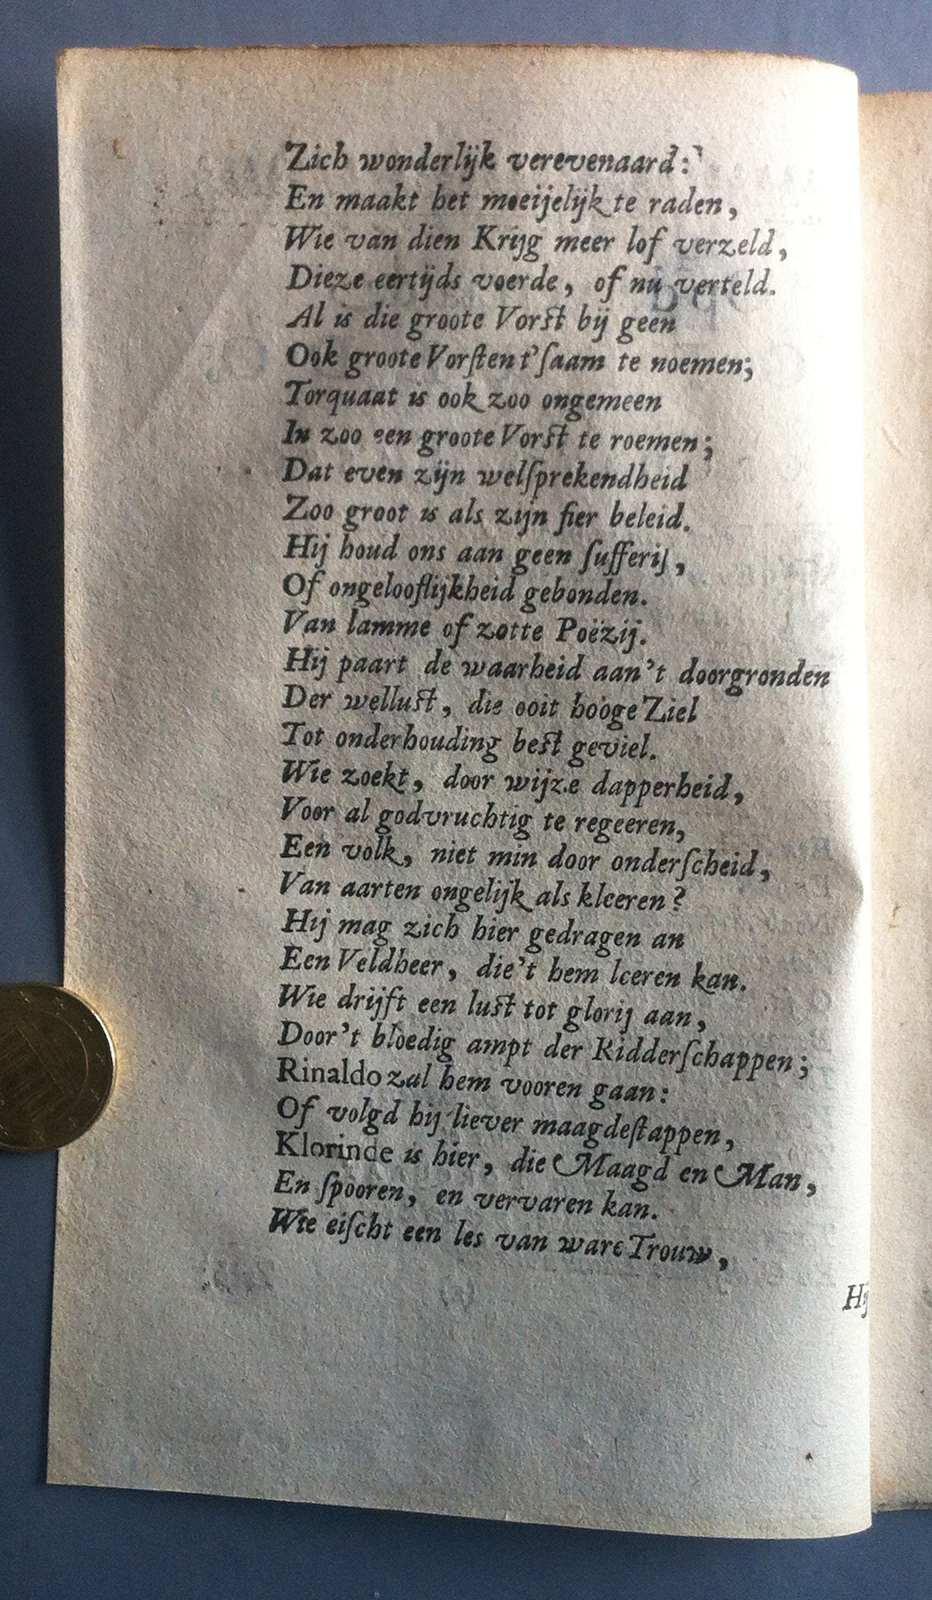 Zich wonderlijk verevenaard:
En maakt het moeijelijk te raden,
Wie van dien Krijg meer lof verzeld,
Dieze eertijds voerde, of nu verteld.
Al is die groote Vorſt bij geen
Ook groote Vorſten t'ſaam te noemen;
Torquaat is ook zoo ongemeen
In zoo een groote Vorſt te roemen;
Dat even zijn welſprekendheid
Zoo groot is als zijn fier beleid.
Hij houd ons aan geen ſufferij,
Of ongelooflijkheid gebonden.
Van lamme of zotte Poëzij.
Hij paart de waarheid aan't doorgronden
Der welluſt, die ooit hooge Ziel
Tot onderhouding beſt geviel.
Wie zoekt, door wijze dapperheid,
Voor al godvruchtig te regeeren,
Een volk, niet min door onderſcheid,
Van aarten ongelijk als kleeren?
Hij mag zich hier gedragen an
Een Veldheer, die't hem leeren kan.
Wie drijft een luſt tot glorij aan,
Door't bloedig ampt der Ridderſchappen;
Rinaldo zal hem vooren gaan:
Of volgd hij liever maagdeſtappen,
Klorinde is hier, die Maagd en Man,
En ſpooren, en vervaren kan.
Wie eiſcht een les van ware Trouw,
Hij